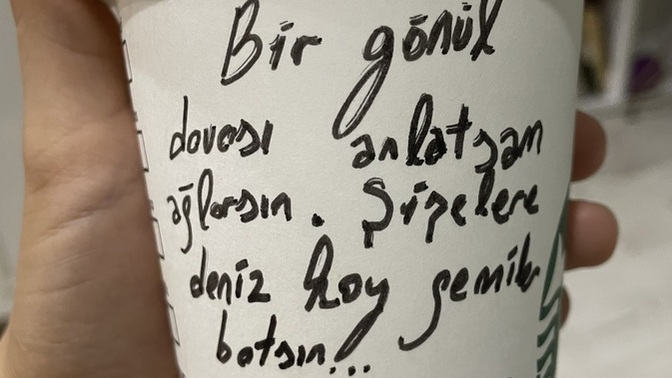 Bir gönül
davası anlatsam
ağlarsın. Şişelere
deniz koy gemiler
batsın...